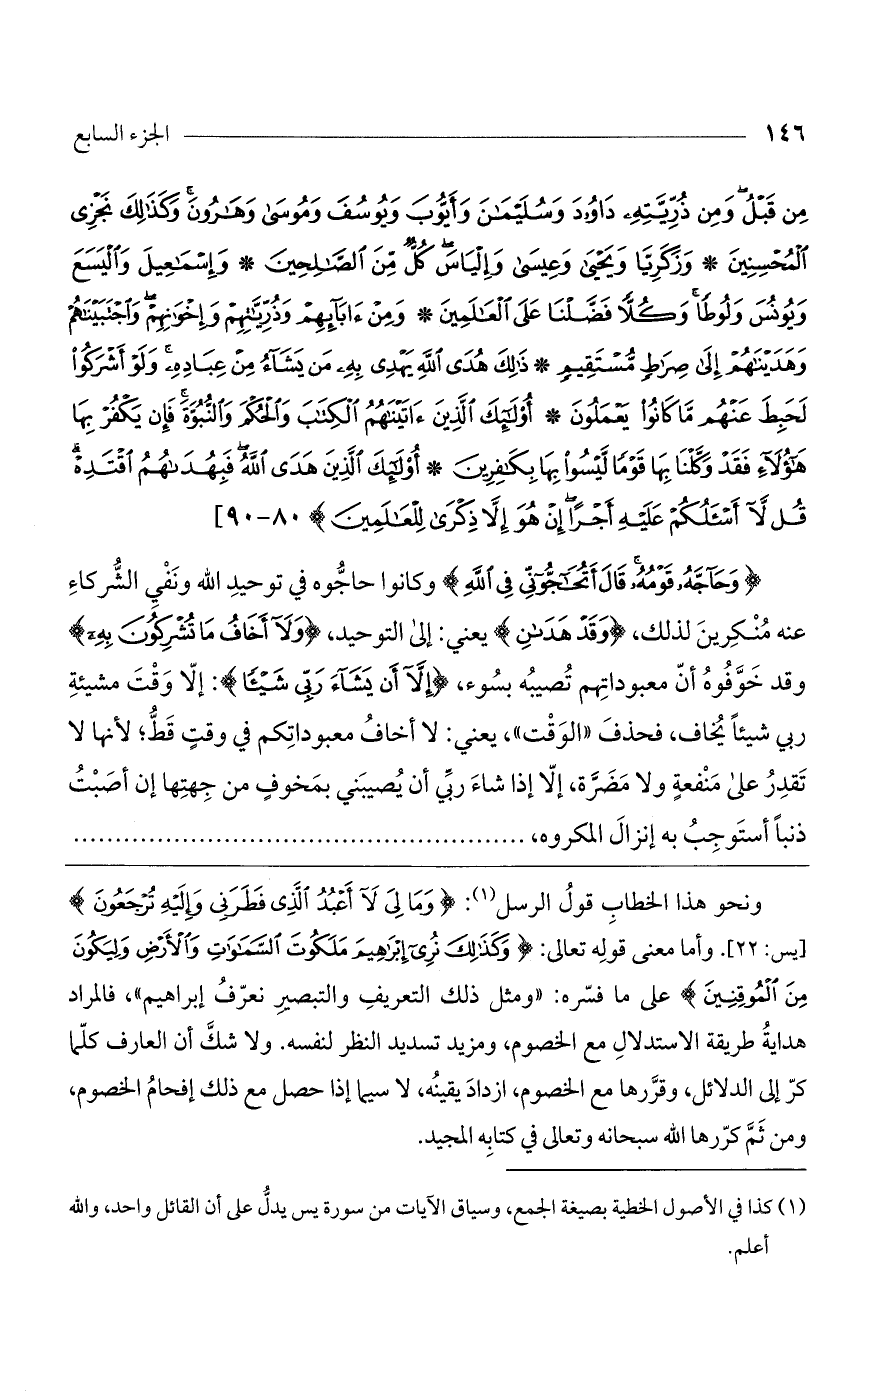 ١٤٦ الجزء السابع
مِن قَبْلُ ۖ وَمِن ذُرِّيَّتِهِۦ دَاوُۥدَ وَسُلَيْمَٰنَ وَأَيُّوبَ وَيُوسُفَ وَمُوسَىٰ وَهَٰرُونَ ۚ وَكَذَٰلِكَ نَجْزِى
ٱلْمُحْسِنِينَ * وَزَكَرِيَّا وَيَحْيَىٰ وَعِيسَىٰ وَإِلْيَاسَ ۖ كُلٌّ مِّنَ ٱلصَّٰلِحِينَ * وَإِسْمَٰعِيلَ وَٱلْيَسَعَ
وَيُونُسَ وَلُوطًا ۚ وَكُلًّا فَضَّلْنَا عَلَى ٱلْعَٰلَمِينَ * وَمِنْ ءَابَآئِهِمْ وَذُرِّيَّٰتِهِمْ وَإِخْوَٰنِهِمْ ۖ وَٱجْتَبَيْنَٰهُمْ
وَهَدَيْنَٰهُمْ إِلَىٰ صِرَٰطٍ مُّسْتَقِيمٍ * ذَٰلِكَ هُدَى ٱللَّهِ يَهْدِى بِهِۦ مَن يَشَآءُ مِنْ عِبَادِهِۦ ۚ وَلَوْ أَشْرَكُوا۟
لَحَبِطَ عَنْهُم مَّا كَانُوا۟ يَعْمَلُونَ * أُو۟لَٰٓئِكَ ٱلَّذِينَ ءَاتَيْنَٰهُمُ ٱلْكِتَٰبَ وَٱلْحُكْمَ وَٱلنُّبُوَّةَ ۚ فَإِن يَكْفُرْ بِهَا
هَٰٓؤُلَآءِ فَقَدْ وَكَّلْنَا بِهَا قَوْمًا لَّيْسُوا۟ بِهَا بِكَٰفِرِينَ * أُو۟لَٰٓئِكَ ٱلَّذِينَ هَدَى ٱللَّهُ ۖ فَبِهُدَىٰهُمُ ٱقْتَدِهْ ۗ
قُل لَّآ أَسْـَٔلُكُمْ عَلَيْهِ أَجْرًا ۖ إِنْ هُوَ إِلَّا ذِكْرَىٰ لِلْعَٰلَمِينَ ﴾ ٨٠-٩٠]
﴿ وَحَآجَّهُۥ قَوْمُهُۥ ۚ قَالَ أَتُحَٰٓجُّوٓنِّى فِى ٱللَّهِ ﴾ وكانوا حاجُّوه في توحيدِ الله ونَفْيِ الشُّركاءِ
عنه مُنْكِرينَ لذلك، ﴿وَقَدْ هَدَىٰنِ ﴾ يعني: إلىٰ التوحيد، ﴿وَلَآ أَخَافُ مَا تُشْرِكُونَ بِهِۦٓ﴾
وقد خَوَّفُوهُ أنّ معبوداتِهم تُصيبُه بسُوء، ﴿إِلَّآ أَن يَشَآءَ رَبِّى شَيْـًٔا ﴾: إلّا وَقْتَ مشيئةِ
ربي شيئاً يُخاف، فحذفَ «الوَقْت»، يعني: لا أخافُ معبوداتِكم في وقتٍ قَطُّ؛ لأنها لا
تَقدِرُ علىٰ مَنْفعةٍ ولا مَضَرَّة، إلّا إذا شاءَ ربِّي أن يُصيبَني بمَخوفٍ من جِهتِها إن أصَبْتُ
ذنباً أستَوجِبُ به إنزالَ المكروه، ......................................................
ونحو هذا الخطابِ قولُ الرسل(١): ﴿ وَمَا لِىَ لَآ أَعْبُدُ ٱلَّذِى فَطَرَنِى وَإِلَيْهِ تُرْجَعُونَ ﴾
[يس: ٢٢]. وأما معنى قولِه تعالى: ﴿ وَكَذَٰلِكَ نُرِىٓ إِبْرَٰهِيمَ مَلَكُوتَ ٱلسَّمَٰوَٰتِ وَٱلْأَرْضِ وَلِيَكُونَ
مِنَ ٱلْمُوقِنِينَ ﴾ على ما فسّره: «ومثل ذلك التعريفِ والتبصيرِ نعرّفُ إبراهيم»، فالمراد
هدايةُ طريقة الاستدلالِ مع الخصوم، ومزيد تسديد النظر لنفسه. ولا شكَّ أن العارف كلّما
كرّ إلى الدلائل، وقرَّرها مع الخصوم، ازدادَ يقينُه، لا سيما إذا حصل مع ذلك إفحامُ الخصوم،
ومن ثَمَّ كرّرها الله سبحانه وتعالى في كتابِه المجيد.
(١) كذا في الأصول الخطية بصيغة الجمع، وسياق الآيات من سورة يس يدلُّ على أن القائل واحد، والله
أعلم.